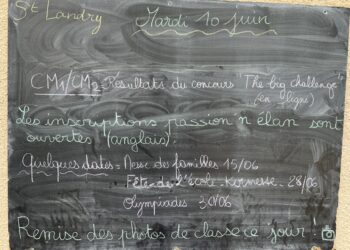 St Landry
Mardi 10 juin
CM1/CM2 - Resultats du concours "The big challenge"
(en ligne)
Les inscriptions passion n élan sont
ouvertes (anglais).
Quelques dates = Messe de familles 15/06
Fête de l'école - Kermesse - 28/06
Olympiades 30/06
Remise des photos de classe ce jour.